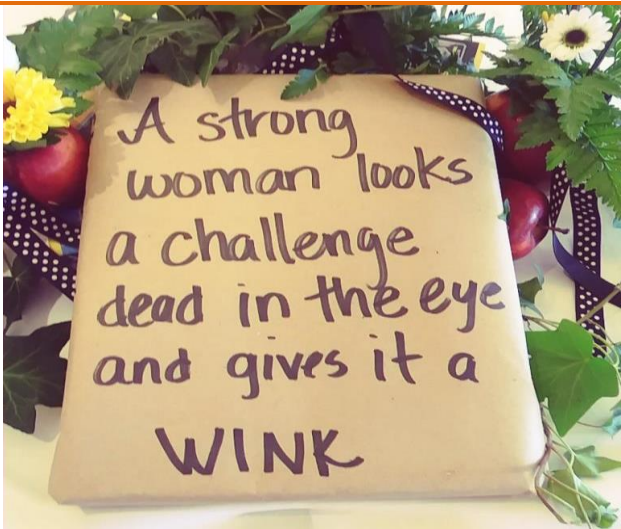 A strong
woman looks
a challenge
dead in the eye
and gives it a
WINK